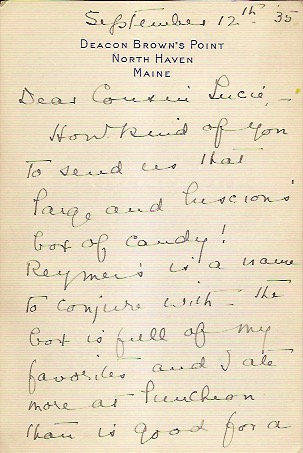 September 12th 35
DEACON BROWN'S POINT
NORTH HAVEN
MAINE
Dear Cousin Lucie, –
How kind of you
to send us that
large and luscious
box of candy!
Reymer's is a name
to conjure with – the
box is full of my
favorites and I ate
more at luncheon
than is good for a